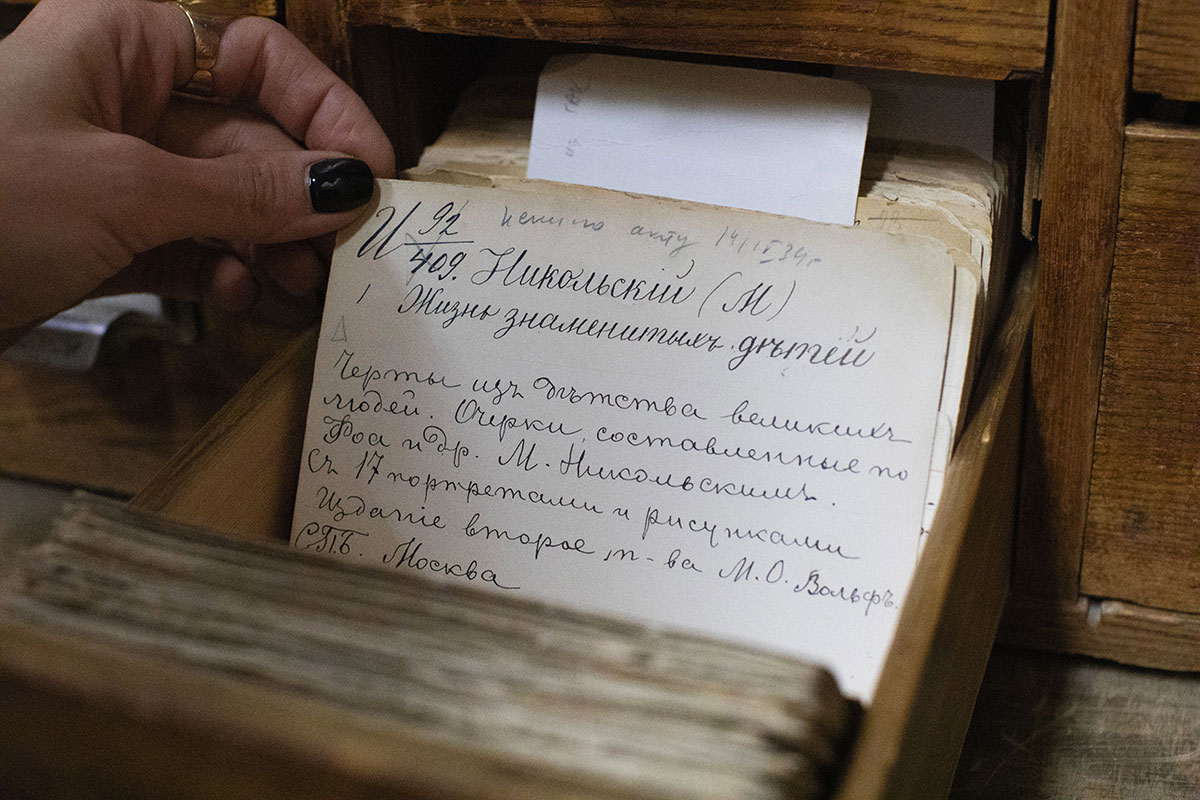 И 92/409. Никольскій (М)
по акту 14/IV 34 г
1 Жизнь знаменитыхъ дѣтей
Черты изъ дѣтства великихъ
людей. Очерки, составленные по
Фоа и др. М. Никольскимъ.
Съ 17 портретами и рисунками
Изданіе второе, т-ва М. О. Вольфъ.
С.П.Б. Москва